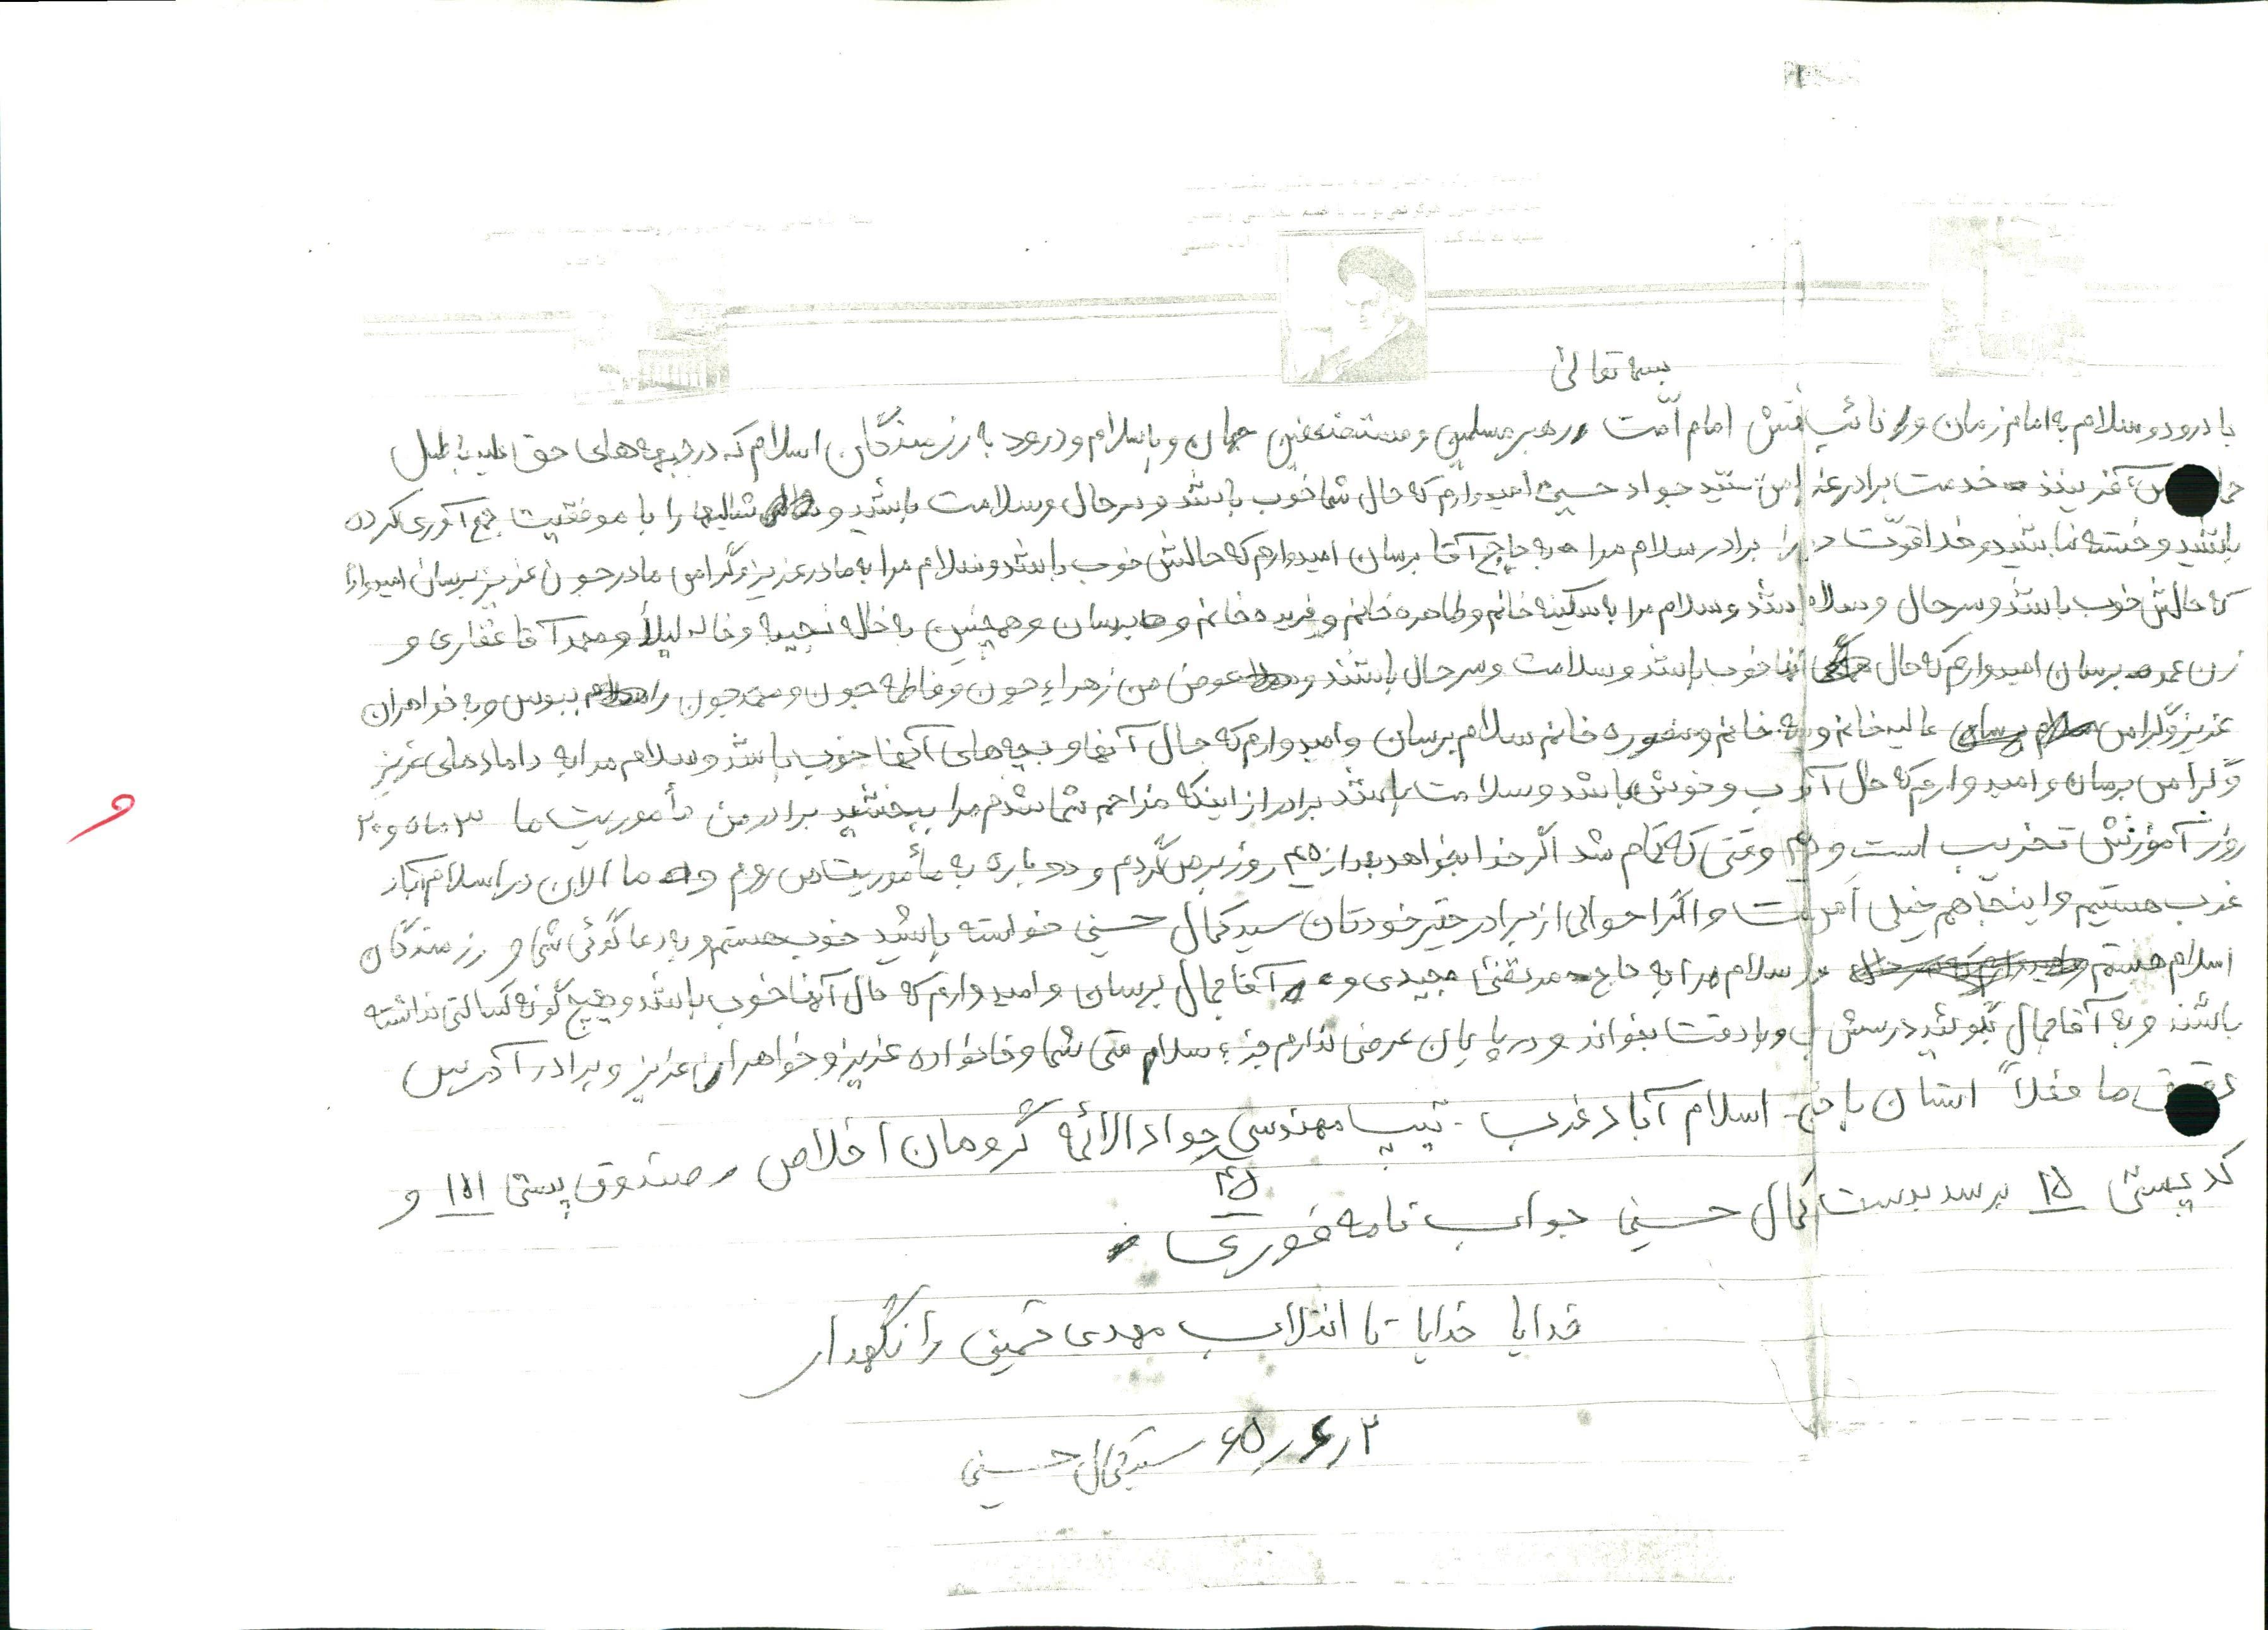 بسمه تعالی
با درود و سلام به امام زمان و نائب امام امّت رهبر مسلمین و مستضعفین جهان و با سلام و درود به رزمندگان اسلام که در جبهه‌های حق علیه باطل
می آفرینند خدمت برادر سید جواد حسینی امیدوارم که حال شما خوب باشد و سرحال و سلامت باشید و شالیها را با موفقیت جمع آوری کرده
باشید و خسته نباشید و خدا قوّت برادر سلام مرا به حاج آقا برسان امیدوارم که حالش خوب باشد و سلام مرا به مادر عزیز و گرامی مادر جون عزیز برسان امیدوارم
که حالش خوب باشد و سرحال و باشد و سلام مرا به سکینه خانم و طاهره خانم و فریده خانم و برسان و همچنین به خاله نجیبه و خاله لیلا و محمد آقا غفاری و
زن عمو برسان امیدوارم که حال آنها خوب باشد و سلامت و سرحال باشند و عوض من زهراء جون و فاطمه جون و محمد جون را ببوس و به خواهران
عزیز و گرامی عالیه خانم و خانم و منصوره خانم سلام برسان و امیدوارم که حال آنها و بچه‌های آنها خوب باشد و سلام مرا به دامادهای عزیز
و گرامی برسان و امیدوارم که حال و خوش باشد و سلامت باشد برادر از اینکه مزاحم شما شدم مرا ببخشید برادر من مأموریت ما ۳ ماه و ۲۰
روز آموزش تخریب است و وقتی که تمام شد اگر خدا بخواهد بعد از ۴۵ روز برمی‌گردم و دوباره به مأموریت می روم و ما الان در اسلام آباد
غرب هستیم و اینجا هم خیلی است و اگر احوالی از برادر حقیر خودتان سید کمال حسینی خواسته باشید خوب هستم و به دعاگوئی شما و رزمندگان
اسلام هستم سلام مرا به حاج مرتضی مجیدی و آقا جمال برسان و امیدوارم که حال آنها خوب باشد و هیچ گونه کسالتی نداشته
باشند و به آقا جمال بگوئید درسش و با دقت بخواند و در پایان عرضی ندارم جز سلامتی شما و خانواده عزیز و خواهران عزیز و برادر آدرس
ما فعلاً استان باختران اسلام آباد غرب - تیپ مهندسی جواد الائمه گروهان اخلاص صندوق پستی ۱۵۱ و
کد پستی ۱۵ ۴۵ برسد بدست کمال حسینی جواب نامه فوری
خدایا خدایا تا انقلاب مهدی خمینی را نگهدار
۲ ر ۶ ر ۶۵ سید کمال حسینی